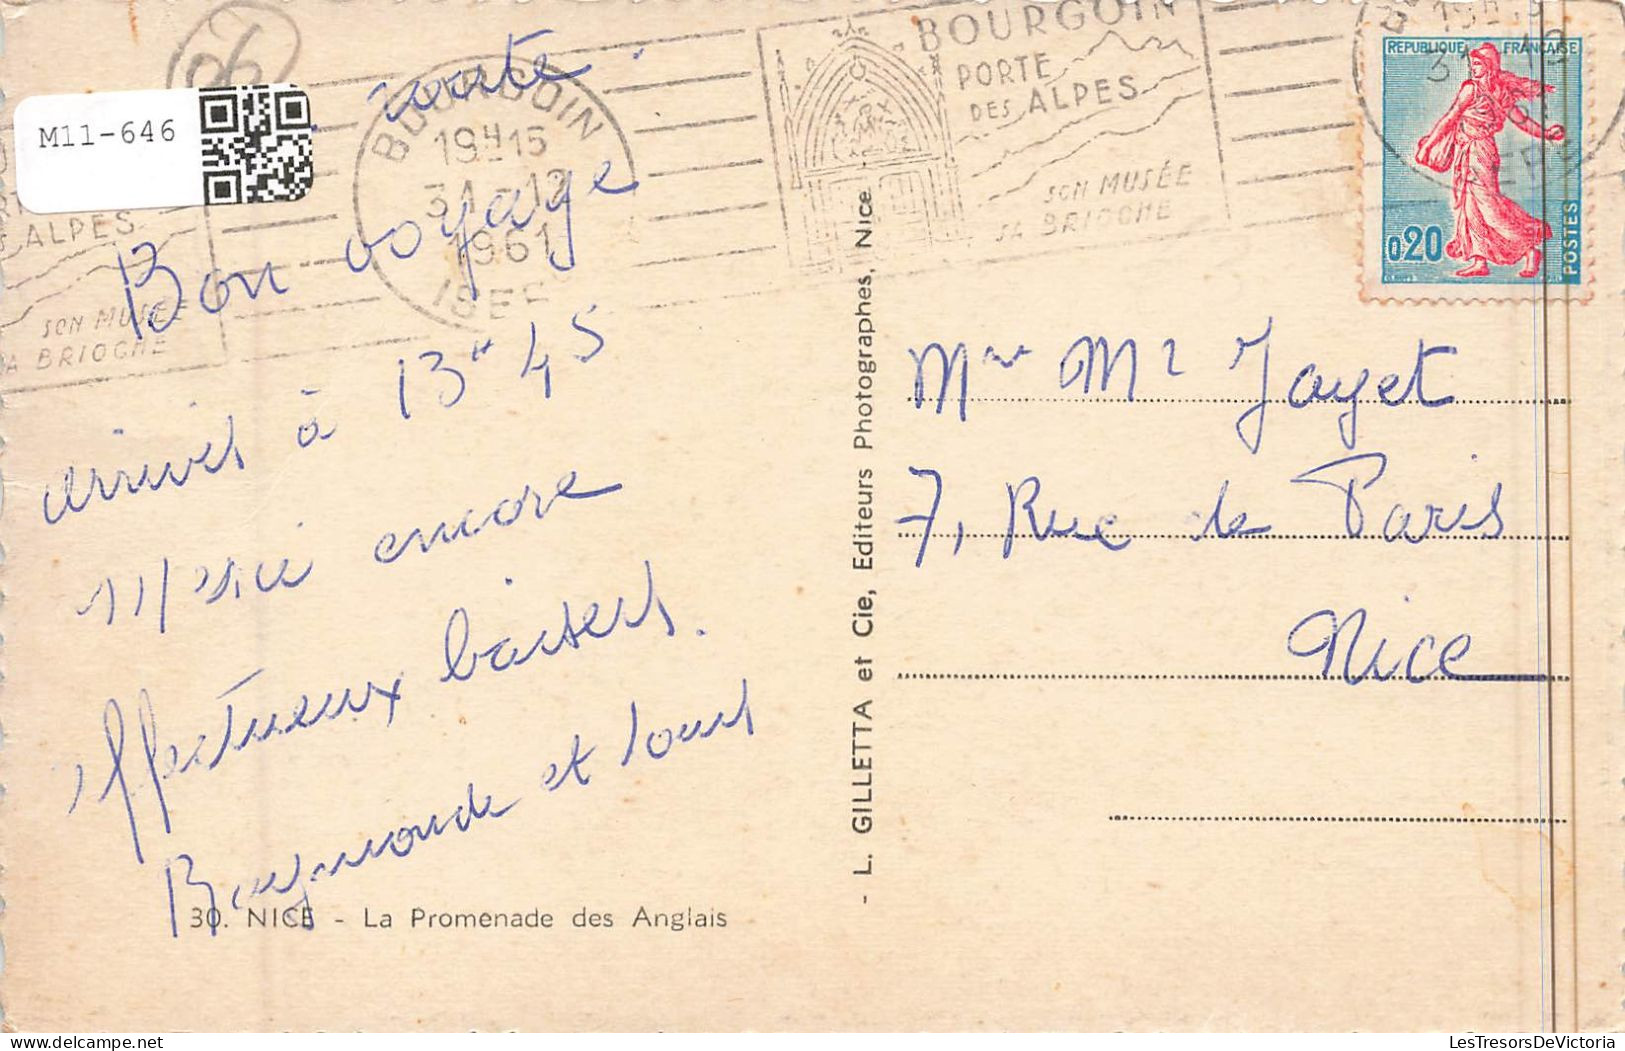 M11-646
06
BOURGOIN
19H15
31-12
1961
ISERE
BOURGOIN
PORTE
DES ALPES
SON MUSÉE
SA BRIOCHE
ALPES
SON MUSÉE
SA BRIOCHE
REPUBLIQUE FRANÇAISE
0,20
POSTES
route.
Bon voyage
arrivés à 13H45
Merci encore
Affectueux baisers.
Raymonde et Louis
30. NICE - La Promenade des Anglais
- L. GILLETTA et Cie, Editeurs Photographes, Nice
Mr Me Jayet
7, Rue de Paris
Nice
LesTresorsDeVictoria